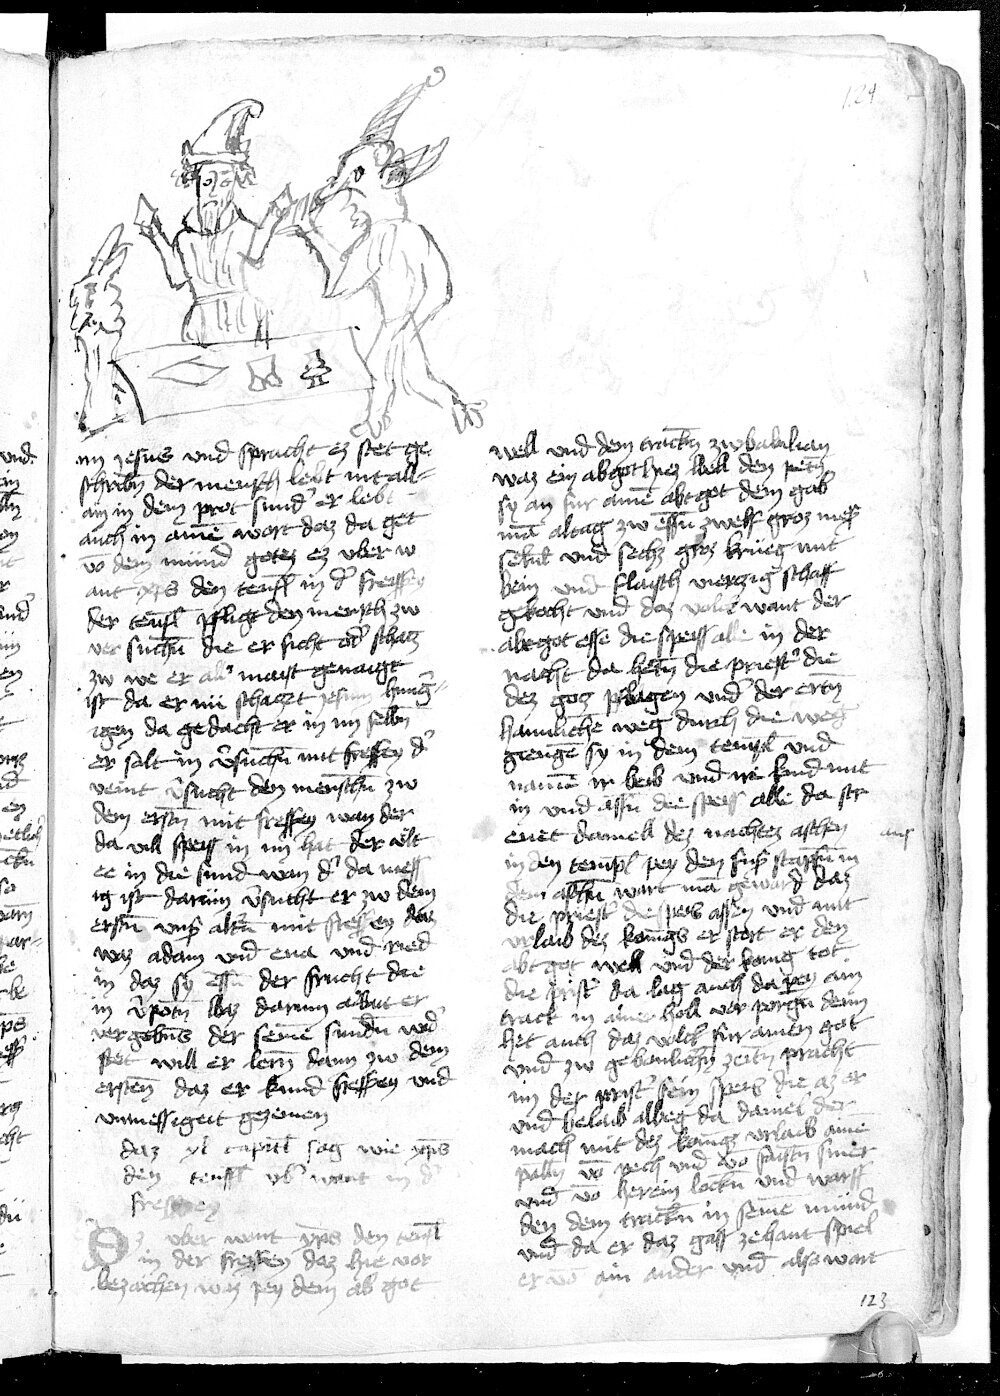 124
im jesus und spracht ez stet ge
schribn der mensch lebt nit all-
ain in dem prot sund er lebt
auch in aīne wort daz da get
vō dem mund gotez ez uber w
ant xps den teufl in dr fressey
der teufl pfligt den mensch zw
ver suchn die er sicht
zw we er all maist genaigt
ist da er nu schatzt jesum hungr-
igen da gedacht er in im selbn
er solt in vsuchn mit fressey dr
veint vsucht den menschn zw
dem erstn mit fressey wan der
da vill speiss in im hat der velt
ee in die sund wan dr da mess
ig ist darum vsucht er zw dem
erstn unsr altn mit fressey daz
waz adam und eua und ried
in daz sy essn der frucht die
in vpotn waz darum arbait er
vergebns der seine sundn
stet will er lern dann zw dem
ersten daz er kund fressey und
unmessigeit gezemen
daz xl capitl sag wie xps
den teuffl ubr want in dr
fressey
Ez uber want xps den teufl
in der fressey daz hie vor
bezaichen waz pey dem ab got
well und dem trackn zw babilian
waz ein abgot hiez bell den petn
sy an fur aīne abtgot dem gab
mā altag zw essn zwelf groz mess
seml und sechz groz krueg mit
wein und flaysch vierzig schaff
gekocht und daz volck want der
abtgot esse die speiss alle in der
nacht da hetn die priestr die
dez gotz pflagen und der ertn
hamliche weg durch die weg
giengē sy in dem templ und
namē ir weib und ire kind mit
in und assn die speiss alle da str
euet daniell dez nachtez aschen auf
in den templ pey den fuss stapfn in
dem aschn wart mā gewar daz
die priestr die speis assen und mit
urlaub dez konigs er stort er den
abtgot well und der konig tot
die pristr da lag auch da pey ain
track in ainer holl ver porgn denn
het auch daz volck fur ainen got
und zw gebonlichn zeitn pracht
im der pristr sein speis die az er
und belaib albeg da daniel der
mach mit dez konigs urlaub aīne
palln vō pech und vō faistn smer
und vō herein lockn und warff
den dem trackn in seinē mund
und da er daz gass zehant spiel
er vō ain ander und also wart
123